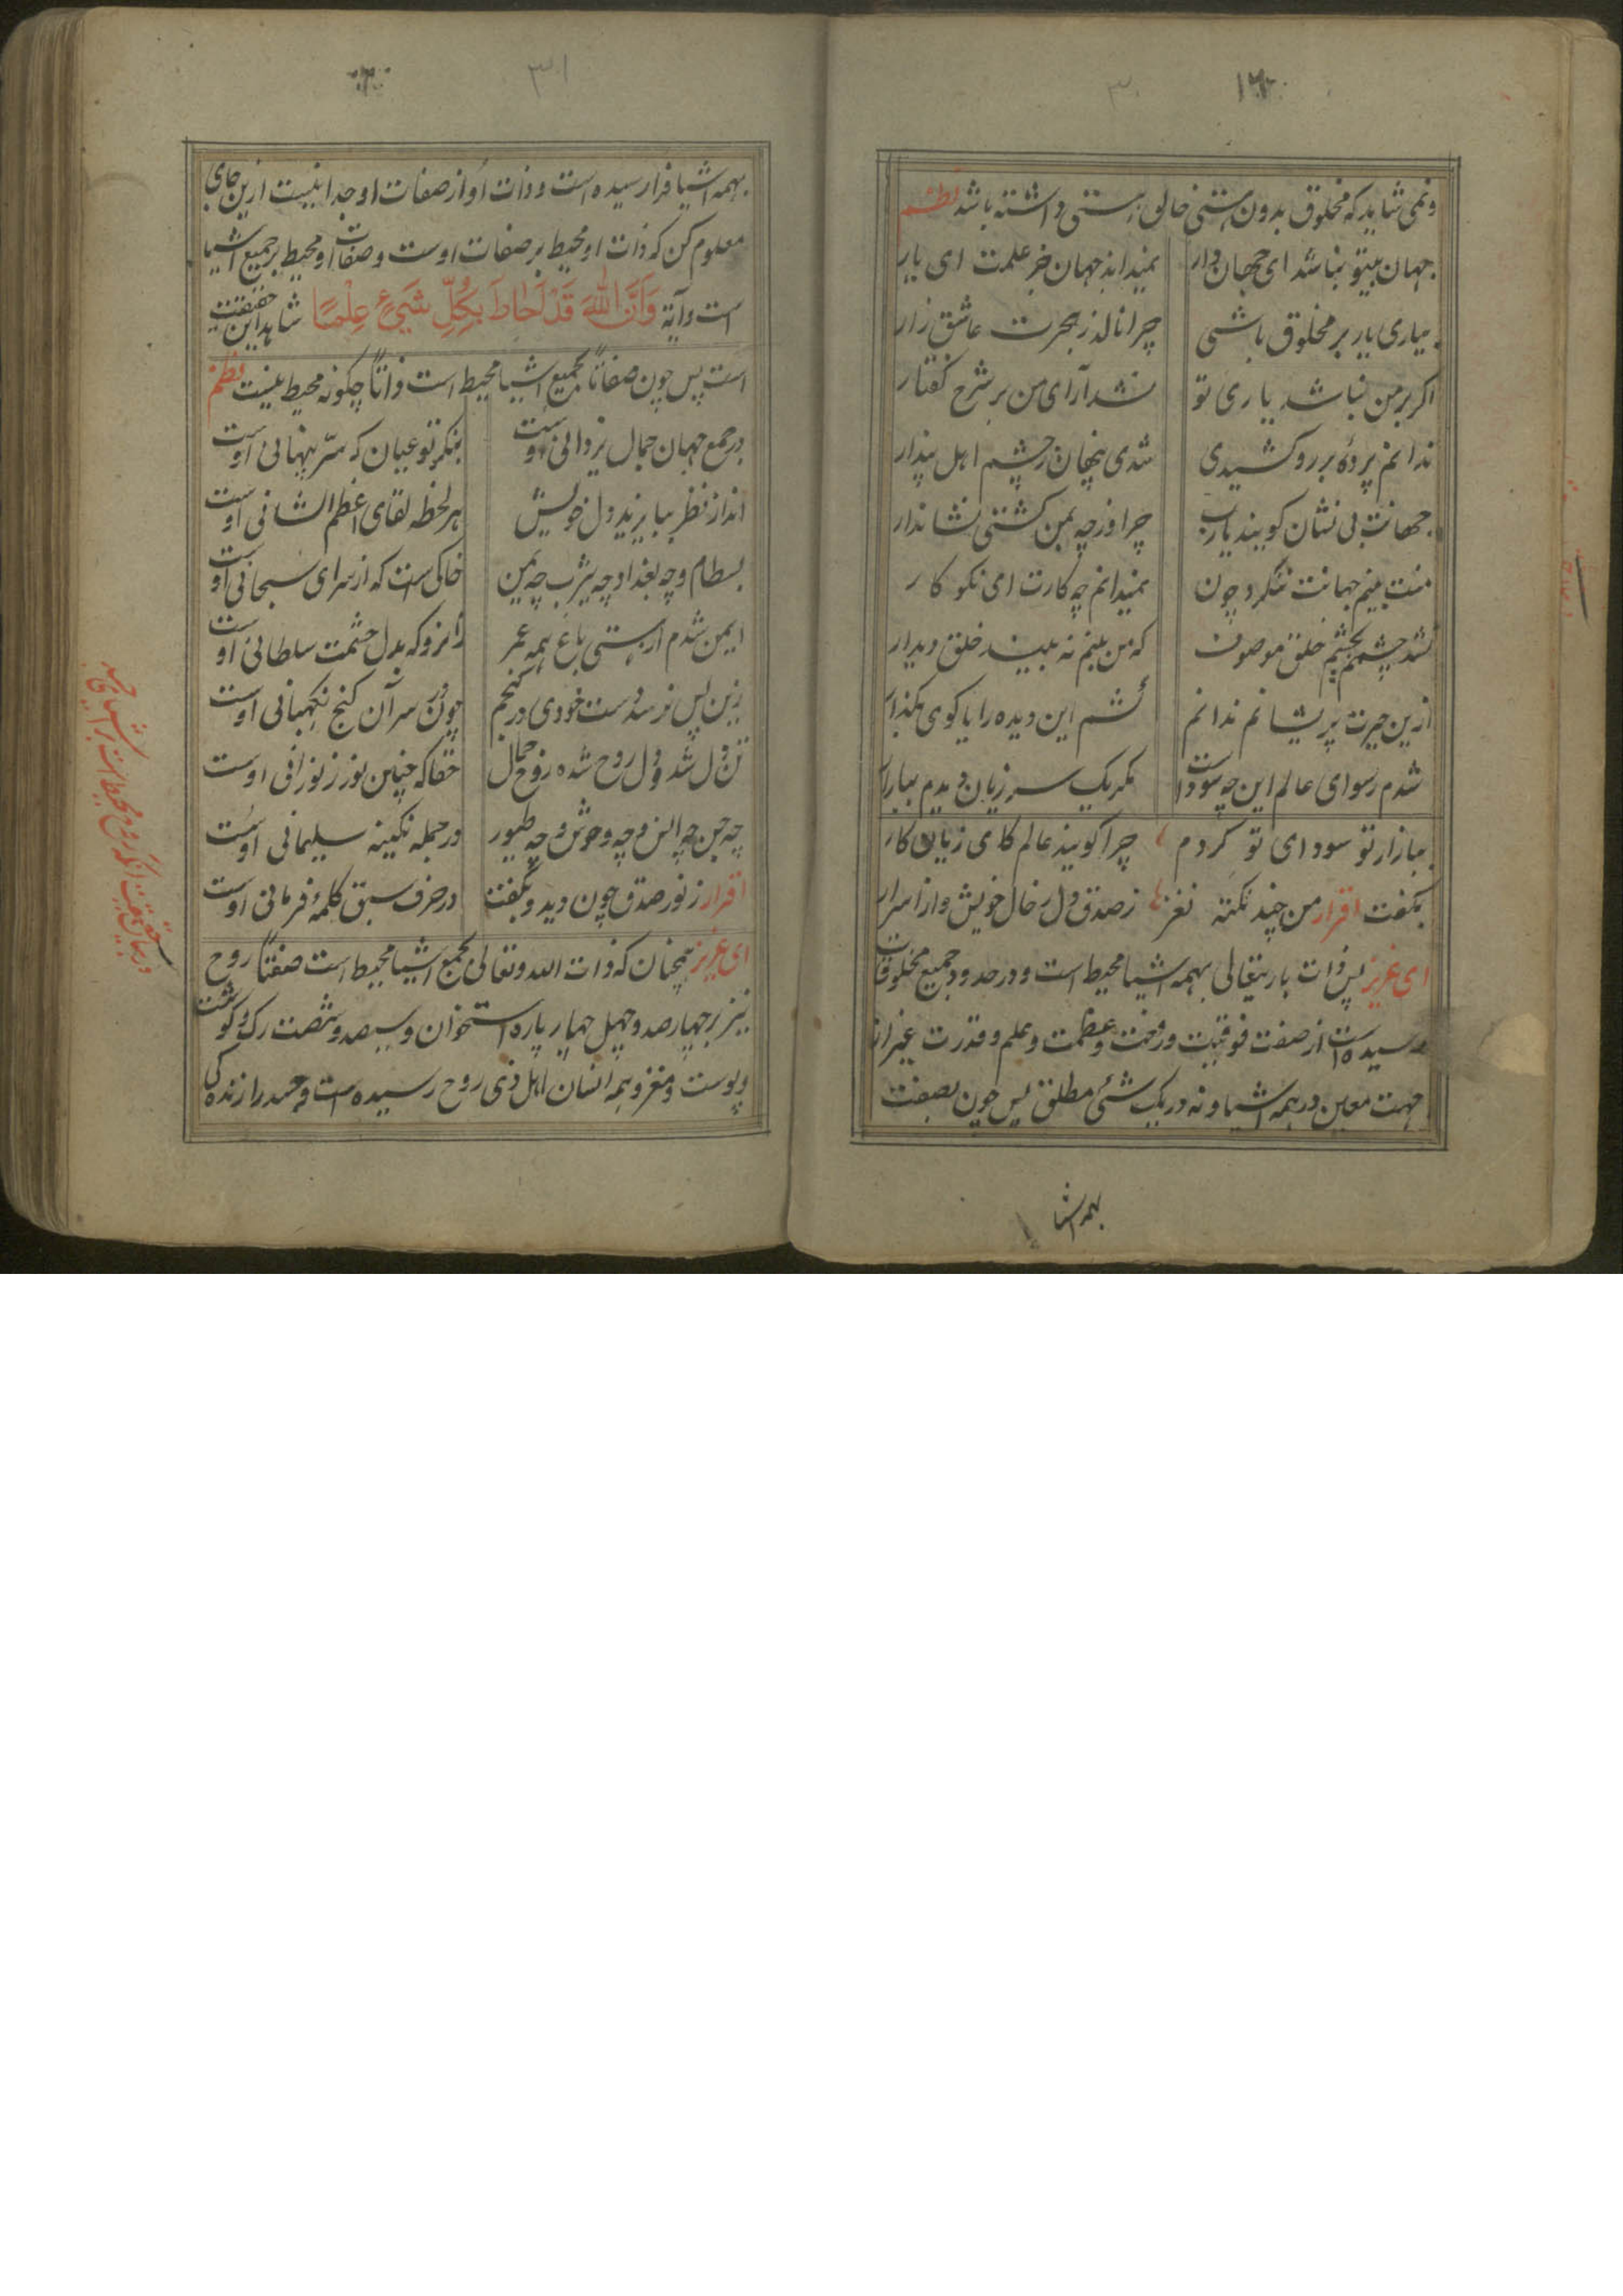 ۳۰
و نمی شاید که مخلوق بدون هستی خالق هستی داشته باشد نظم
جهان بیتو نباشد ای جهان دار نمیداند جهان جز علمت ای یار
بیاری یار بر مخلوق باشی چرا نالد ز هجرت عاشق زار
اکر بر من نباشد یاری تو نشد آرای من بر شرح کفتار
ندانم پردهٔ بر رو کشیدی شدی پنهان ز چشم اهل پندار
جهانت بی نشان کویند یارب چرا و ز چه بمن کشتی نشاندار
منت بینم جهانت ننکرد چون نمیدانم چه کارت ای نکو کار
نشد چشمم بچشم خلق موصوف که من بینم نه بیند خلق دیدار
ازین حیرت پریشانم ندانم این دیده را یا کوی بکذار
شدم رسوای عالم این چه سوداست مکر یک سر زیان دیدم ببازار
ببازار تو سودای تو کردم چرا کویند عالم کای زیان کار
بکفت اقرار من چند نکته نغز ز صدق دل ز حال خویش و از اسرار
ای عزیز پس ذات باریتعالی بهمه اشیا محیط است و در حدود جمیع مخلوقات
رسیده است از صفت فوقیت و رحمت و عظمت و علم و قدرت غیر از
جهت معین در همه اشیا و نه در یک شئی مطلق پس چون بصفت
بهمه اشیا
۳۱
بهمه اشیا فرا رسیده است و ذات او از صفات او جدا نیست ازین جای
معلوم کن که ذات او محیط بر صفات اوست و صفات او محیط بر جمیع اشیا
است و آیه وَاَنَّ اللهَ قَدْ اَحَاطَ بِكُلِّ شَيْءٍ عِلْمًا شاهد این حقیقت
است پس چون صفاتاً بجمیع اشیا محیط است ذاتاً چکونه محیط نیست نظم
در جمع جهان جمال یزدانی اوست بنکر تو عیان که سرّ پنهانی اوست
انداز نظر ببایزید دل خویش هر لحظه لقای اعظم الشانی اوست
بسطام و چه بغداد چه یثرب چه یمن خاکی است که از سرای سبحانی اوست
ایمن شدم از هستی باغ همه عمر زانرو که بدل حشمت سلطانی اوست
زین پس نرسد دست خودی در کنجم چون بر سر آن کنج نکهبانی اوست
تن دل شد و دل روح شده روح جمال حقا که چنین نور ز نورانی اوست
چه جن چه انس و چه وحوش و چه طیور در جمله نکینه سلیمانی اوست
اقرار ز نور صدق چون دید و بکفت در حرف سبق کلمهٔ فرمانی اوست
ای عزیز همچنان که ذات الله وتعالی بجمیع اشیا محیط است صفتاً روح
نیز بر چهارصد و چهل چهار پاره استخوان و سیصد و شصت رک و کوشت
و پوست و مغز و همه انسان اهل ذی روح رسیده است و جسد را زنده کی